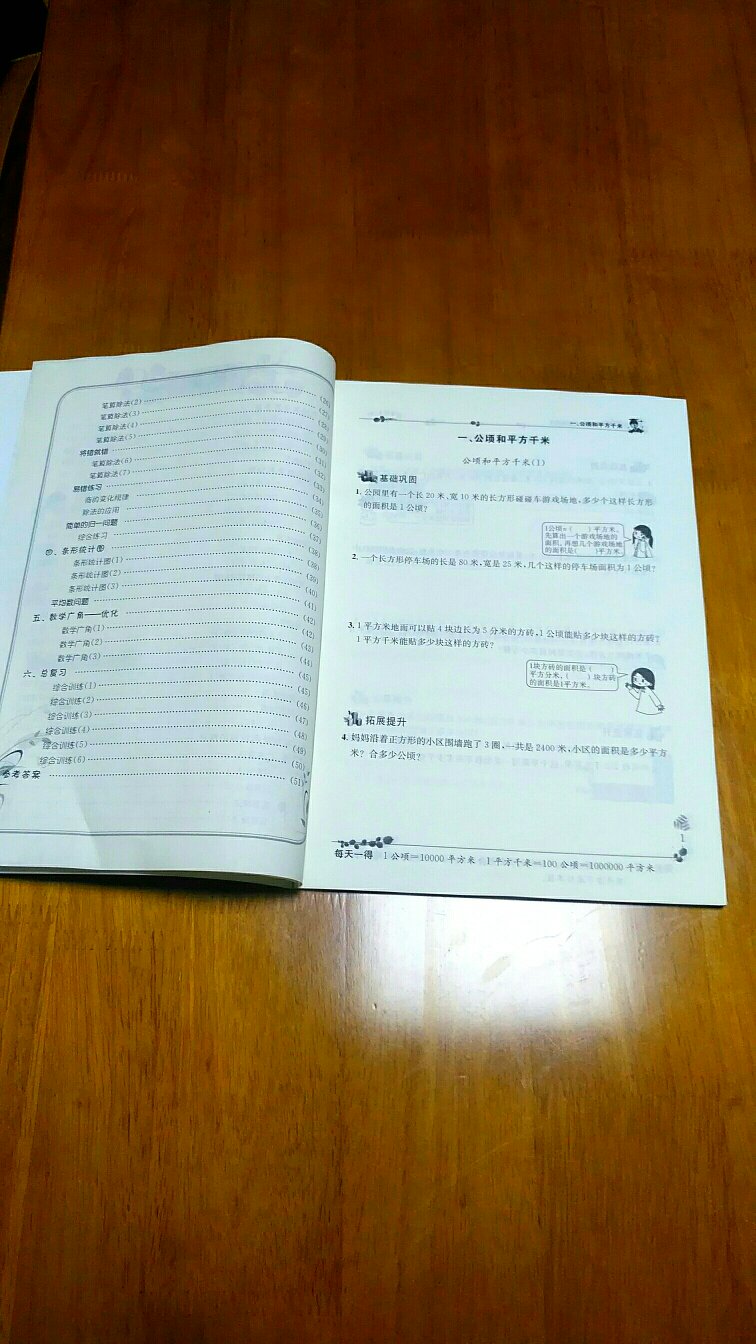 笔算除法(2) (26)
笔算除法(3) (27)
笔算除法(4) (28)
笔算除法(5) (29)
将错就错 (30)
笔算除法(6) (31)
笔算除法(7) (32)
易错练习 (33)
商的变化规律 (34)
除法的应用 (35)
简单的归一问题 (36)
综合练习 (37)
四、条形统计图 (38)
条形统计图(1) (38)
条形统计图(2) (39)
条形统计图(3) (40)
平均数问题 (41)
五、数学广角——优化 (42)
数学广角(1) (42)
数学广角(2) (43)
数学广角(3) (44)
六、总复习 (45)
综合训练(1) (45)
综合训练(2) (46)
综合训练(3) (47)
综合训练(4) (48)
综合训练(5) (49)
综合训练(6) (50)
参考答案 (51)
一、公顷和平方千米
一、公顷和平方千米
公顷和平方千米(1)
基础巩固
1. 公园里有一个长 20 米、宽 10 米的长方形碰碰车游戏场地,多少个这样长方形
的面积是 1 公顷?
1公顷=( )平方米,
先算出一个游戏场地的
面积,再想几个游戏场地
的面积是( )平方米.
2. 一个长方形停车场的长是 80 米,宽是 25 米,几个这样的停车场面积为 1 公顷?
3. 1 平方米地面可以贴 4 块边长为 5 分米的方砖,1 公顷能贴多少块这样的方砖?
1 平方千米能贴多少块这样的方砖?
1块方砖的面积是( )
平方分米,( )块方砖
的面积是1平方米.
拓展提升
4. 妈妈沿着正方形的小区围墙跑了 3 圈,一共是 2400 米,小区的面积是多少平方
米? 合多少公顷?
1
每天一得 1 公顷=10000 平方米 1 平方千米=100 公顷=1000000 平方米